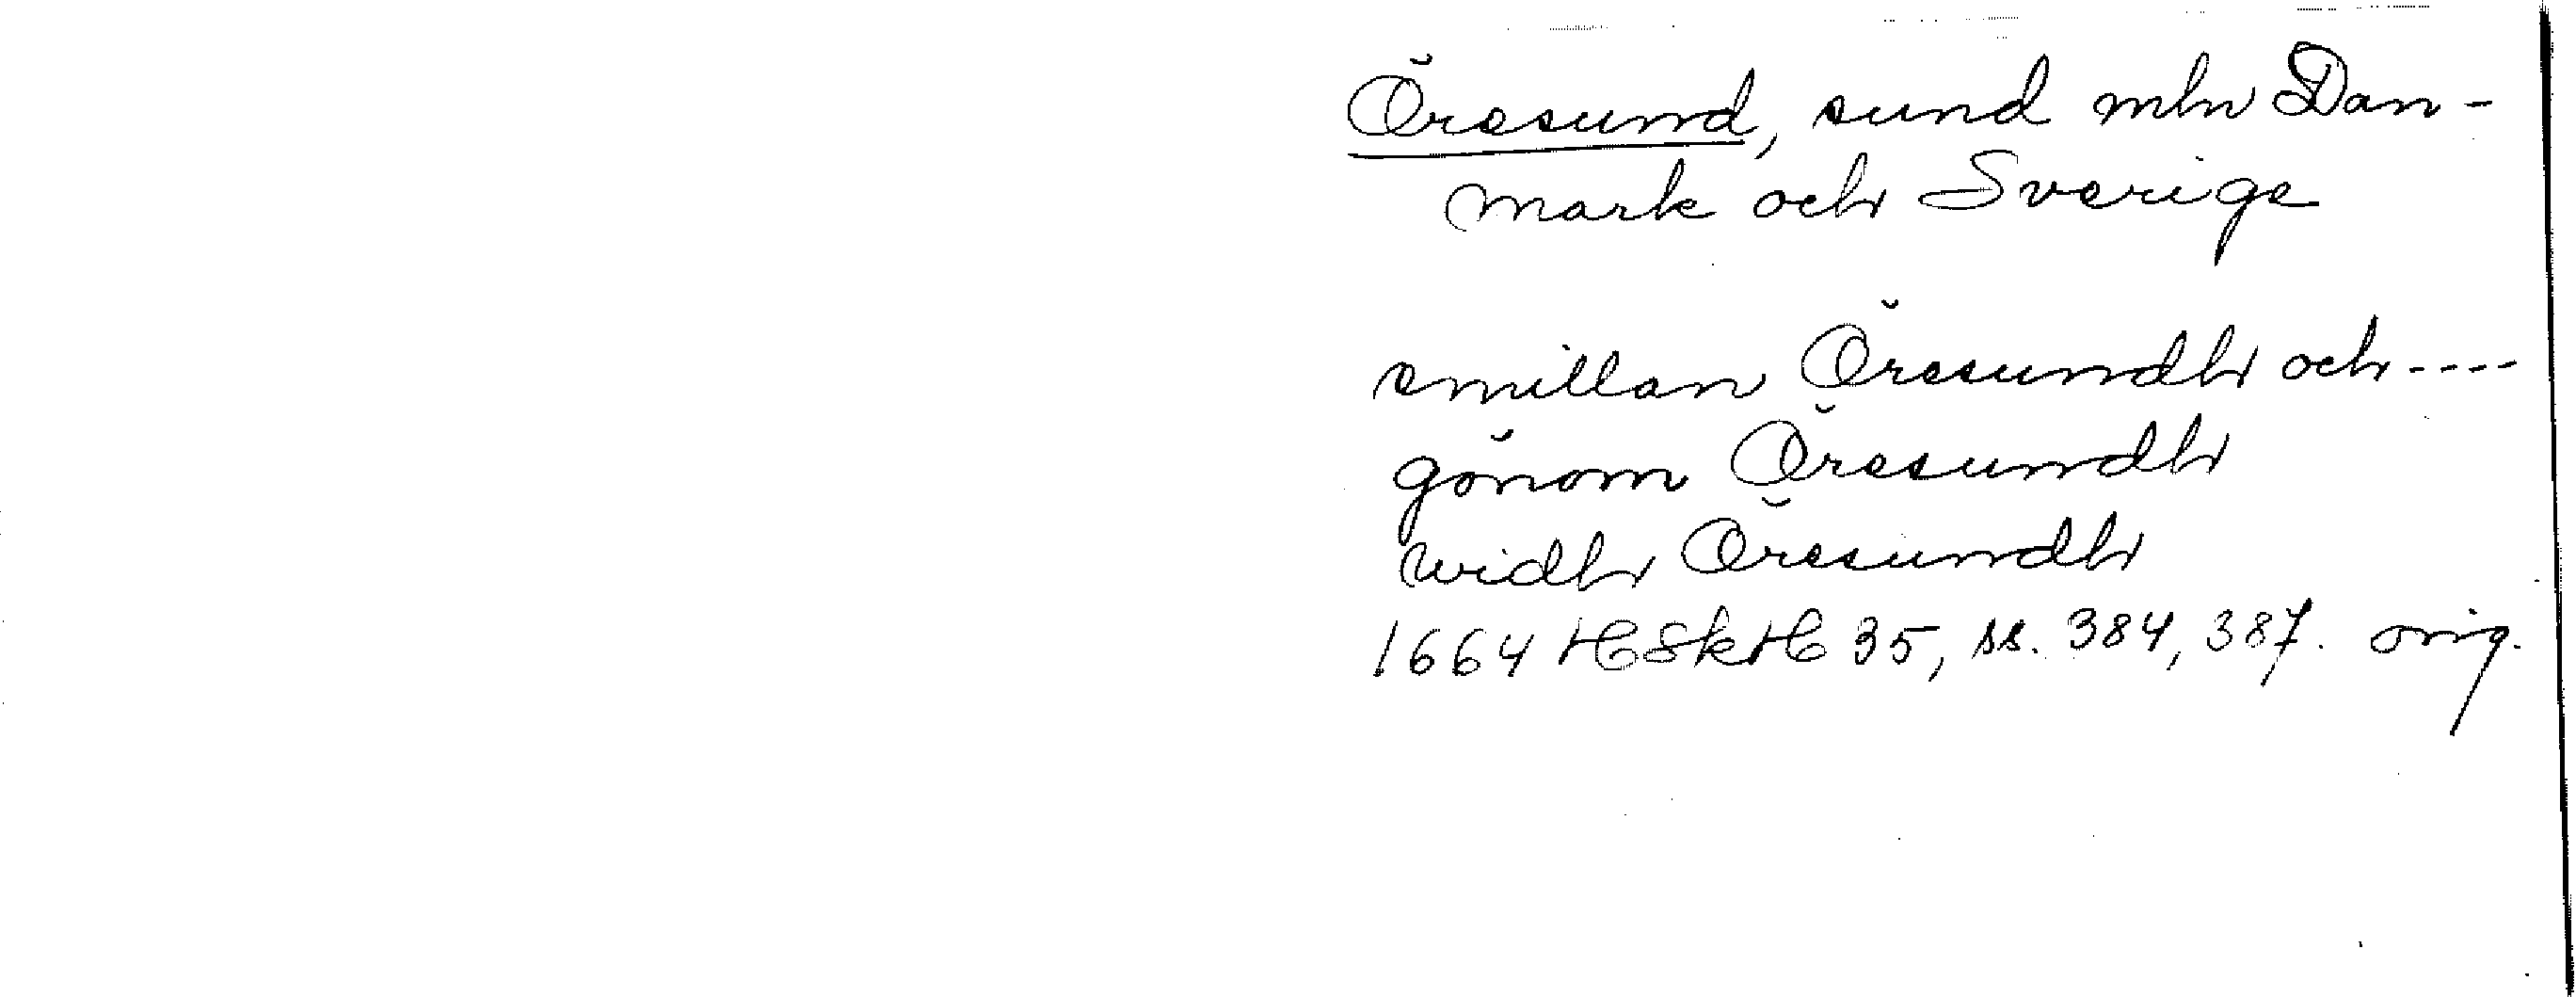 Öresund, sund mln Dan-
mark och Sverige
emillan Öresundh och ----
gönom Öresundh
widh Öresundh
1664 HSkH 35, ss. 384, 387. orig.